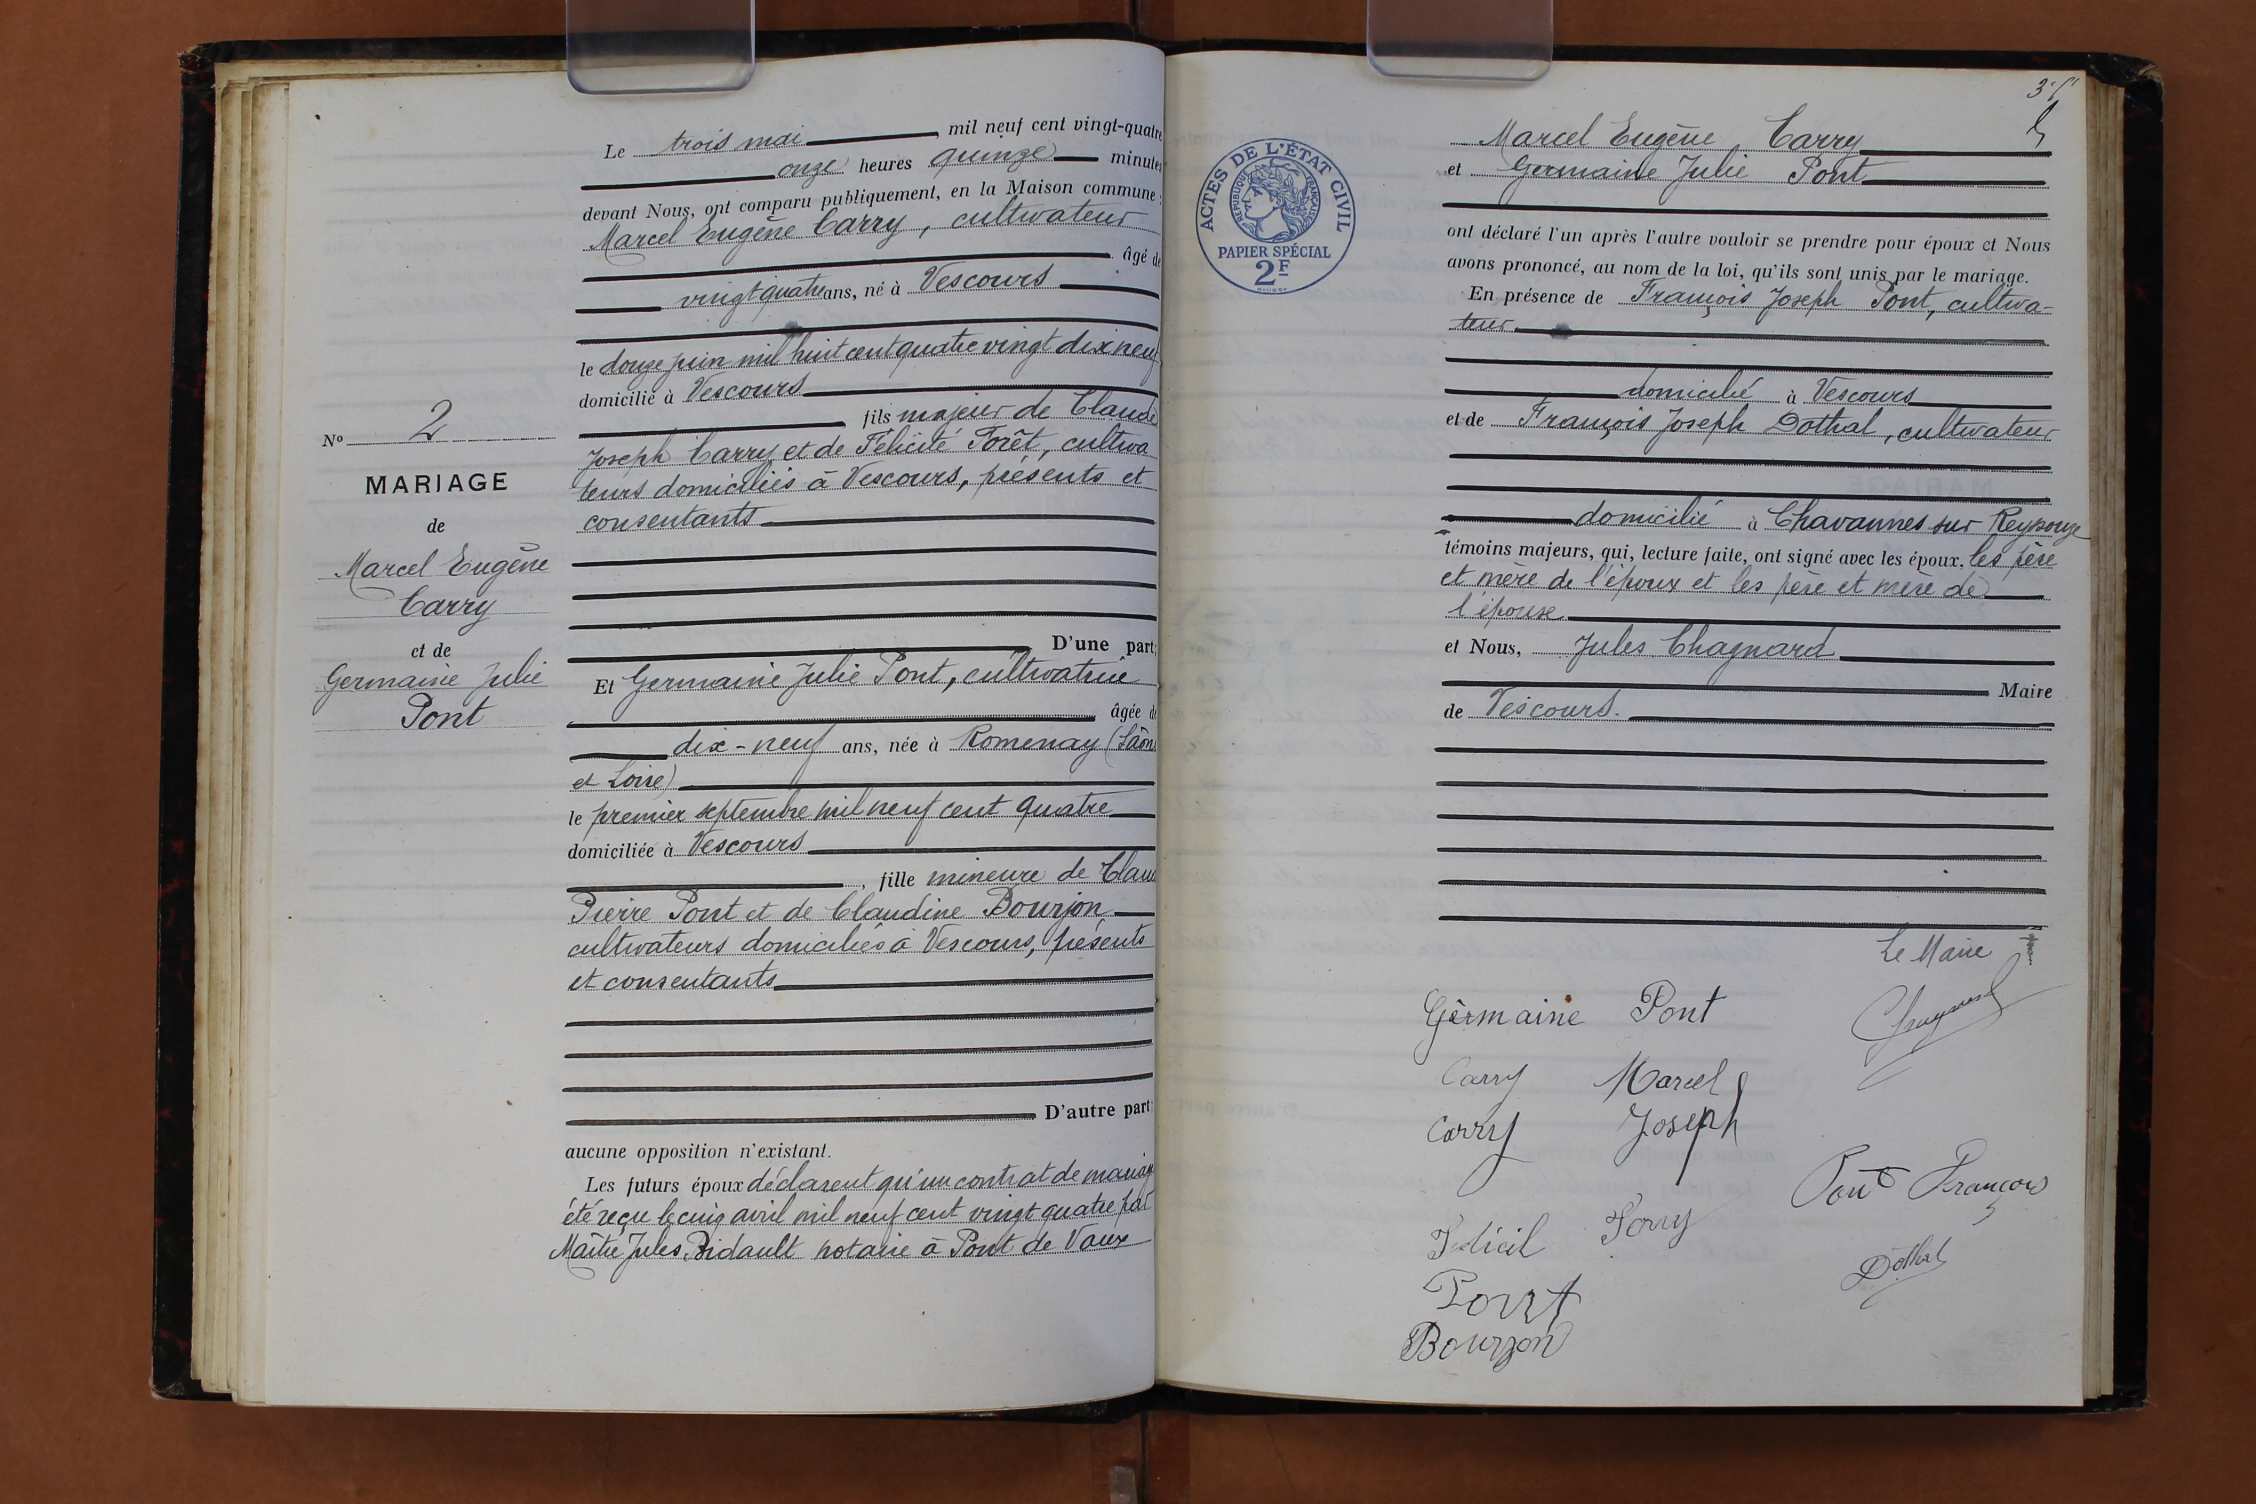 Le trois mai, mil neuf cent vingt-quatre
onze heures quinze minutes
devant Nous, ont comparu publiquement, en la Maison commune :
Marcel Eugène Carry, cultivateur
âgé de
vingt quatre ans, né à Vescours
le douze juin mil huit cent quatre vingt dix neuf
domicilié à Vescours
fils majeur de Claude
Joseph Carry et de Félicité Forêt, cultiva
teurs domiciliés à Vescours, présents et
consentants
D'une part;
Et Germaine Julie Pont, cultivatrice
âgée de
dix-neuf ans, née à Romenay (Saône
et Loire)
le premier septembre mil neuf cent quatre
domiciliée à Vescours
, fille mineure de Clau
Pierre Pont et de Claudine Bourjon
cultivateurs domiciliés à Vescours, présents
et consentants
D'autre part;
aucune opposition n'existant.
Les futurs époux déclarent qu'un contrat de mariag
été reçu le cinq avril mil neuf cent vingt quatre par
Maître Jules Bidault notaire à Pont de Vaux
No 2
MARIAGE
de
Marcel Eugène
Carry
et de
Germaine Julie
Pont
ACTES DE L'ÉTAT CIVIL
RÉPUBLIQUE FRANÇAISE
PAPIER SPÉCIAL
2F
Marcel Eugène Carry
et Germaine Julie Pont
ont déclaré l'un après l'autre vouloir se prendre pour époux et Nous
avons prononcé, au nom de la loi, qu'ils sont unis par le mariage.
En présence de François Joseph Pont, cultiva-
teur
domicilié à Vescours
et de François Joseph Dothal, cultivateur
domicilié à Chavannes sur Reyssouze
témoins majeurs, qui, lecture faite, ont signé avec les époux, les père
et mère de l'époux et les père et mère de
l'épouse
et Nous, Jules Chagnard
Maire
de Vescours.
Le Maire
Chagnard
Germaine Pont
Carry Marcel
Carry Joseph
Pont François
Dothal
Pont
Bourjon